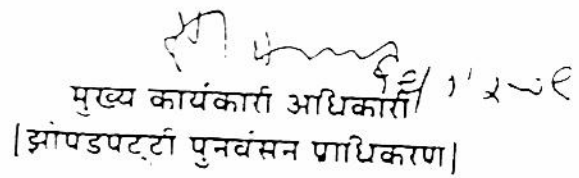 मुख्य कार्यकारी अधिकारी
|झोपडपट्टी पुनर्वसन प्राधिकरण|